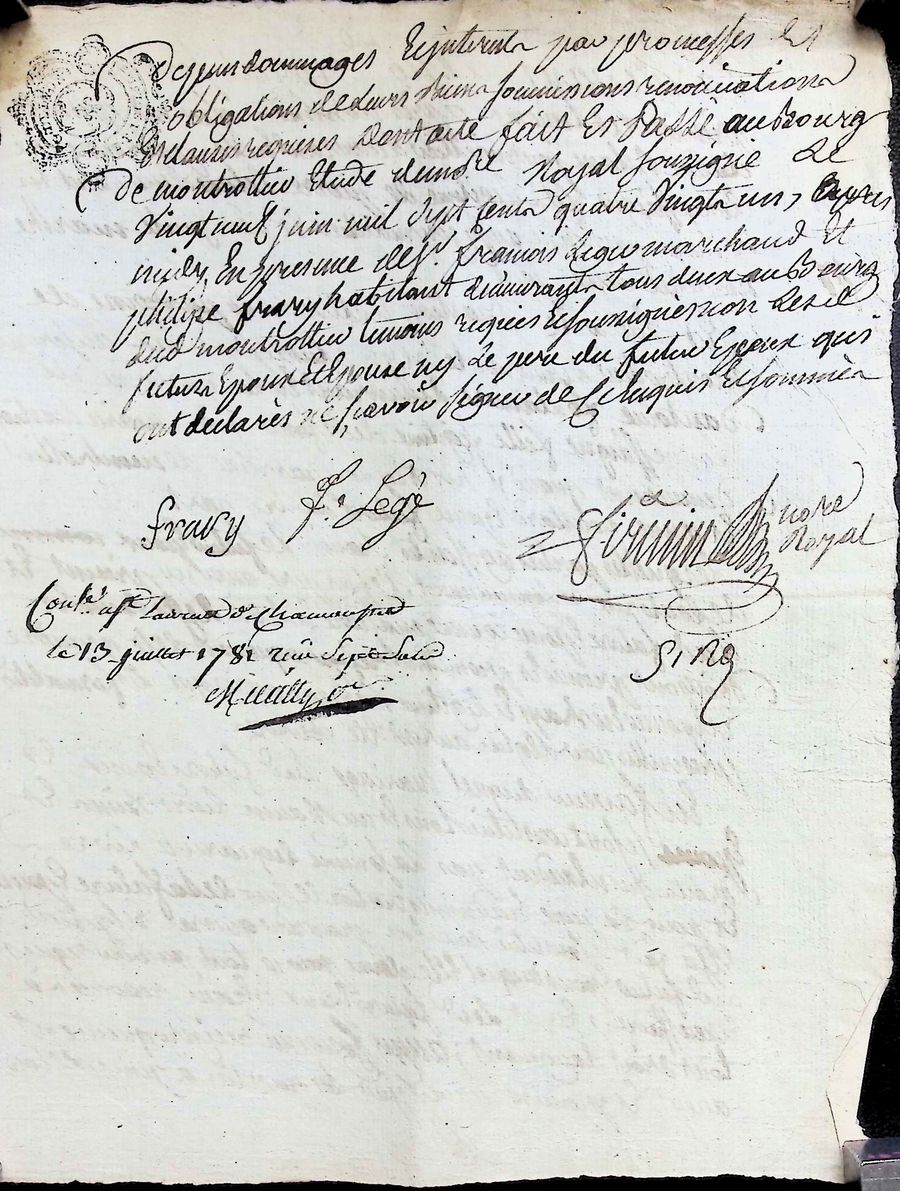 Depens dommages Et interets par promesses Et
obligations de leurs biens soumissions renonciations
Et clauses requises dont acte fait Et Passé au Bourg
de montrottier Etude du no.re Royal souzigné Le
Vingt neuf juin mil sept cents quatre vingts un, apres
midy, En presence de s.r francois Legé marchand Et
philipe frary habitant demeurants tous deux au Bourg
dud montrottier temoins requis Et soussignés non Lesd
futurs Epoux Et Epouse ny Le pere du futur Epoux qui
ont declarés ne sçavoir signer de Ce Enquis Et sommés
frary f.s Legé
Firmin nore
Royal
Con.lé a S.t Laurent de Chamousset
le 13 juillet 1781 reçu sept sols